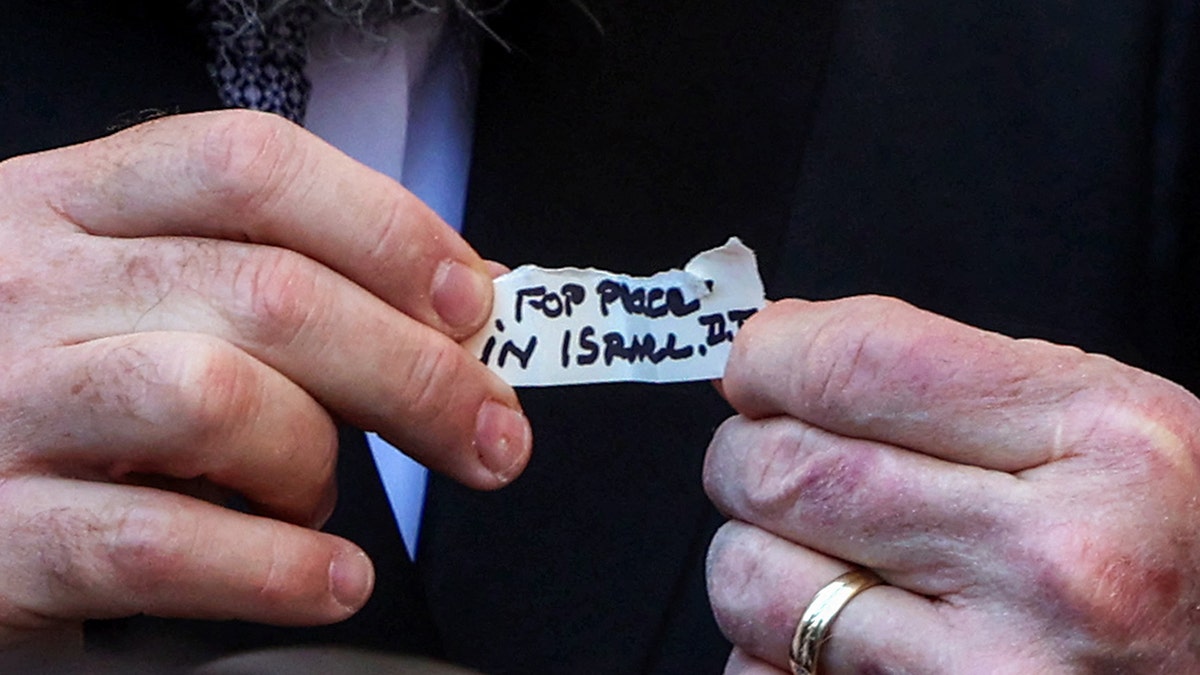 FOR PEACE
IN ISRAEL. D.T